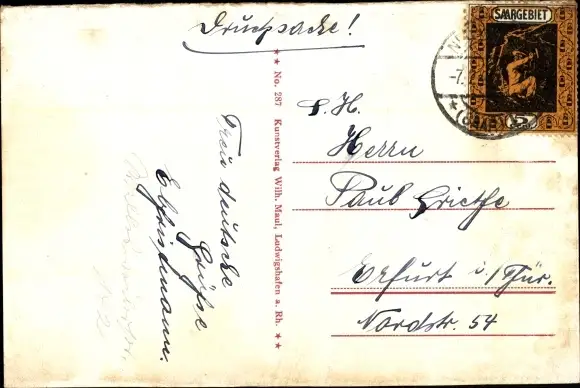 Drucksache!
SAARGEBIET
5
-7.
★★ No. 287 Kunstverlag Wilh. Maul, Ludwigshafen a. Rh. ★★
S. H.
Herrn
Paul Griethe
Erfurt i/Thür.
Nordstr. 54
Treu deutsche
Grüße